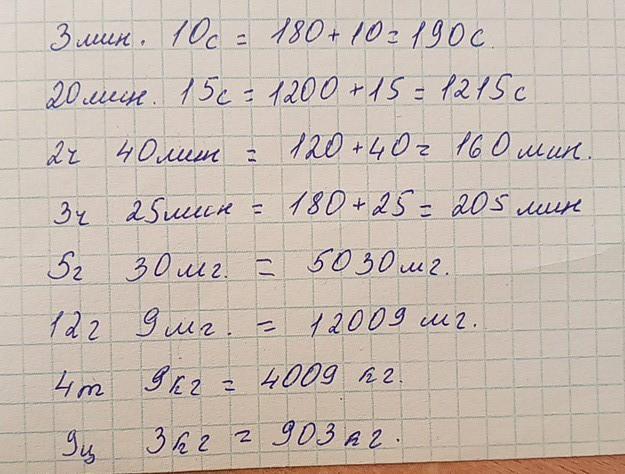 3мин. 10с = 180+10=190с.
20мин. 15с = 1200+15=1215с
2ч 40мин = 120+40= 160мин.
3ч 25мин = 180+25= 205мин
5г 30мг. = 5030мг.
12г 9мг. = 12009 мг.
4т 9кг = 4009 кг.
9ц 3кг = 903кг.